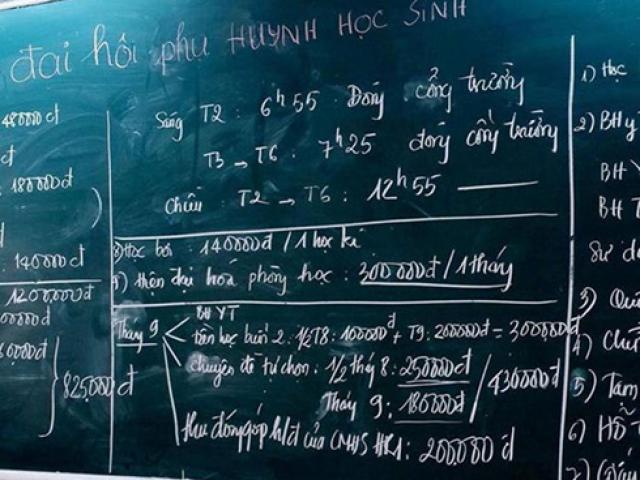 đại hội phụ HUYNH HỌC SINH
48000đ
đ
: 180000đ
: 140000đ
1200.000đ
825.000đ
Sáng T2 : 6h55 Đóng cổng trường
T3 → T6 : 7h25 đóng cổng trường
Chiều : T2 → T6 : 12h55
8) Học bơi : 140000đ / 1 học kì
9) hiện đại hoá phòng học : 300000đ / 1 tháng
Tháng 9
BHYT
tiền học buổi 2 : 1/2T8 : 100000đ + T9 : 200000đ = 300000đ
chuyên đề tự chọn : 1/2 thág 8 : 250000đ
Tháy 9 : 180000đ / 430000đ
thu đóng góp h/đ của CMHS HK1 : 200.000 đ
1) Học
2) BH y
BH
BH T
Sử d
3) Quỹ
4) Chữ
5) Tăm
6) Hỗ
7)